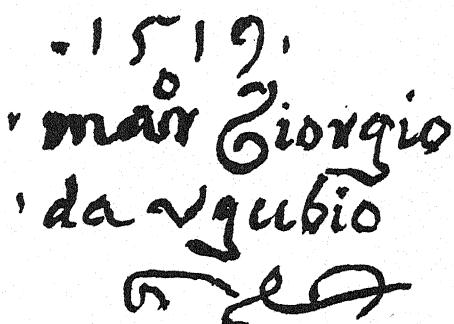 ·1519·
· maͦr Giorgio
· da vgubio